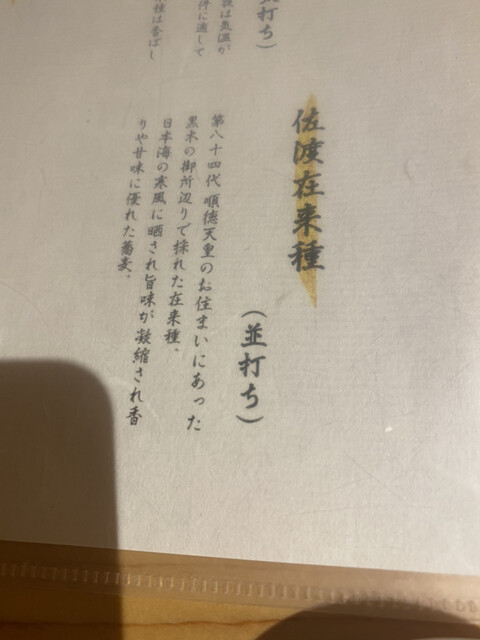 佐渡在来種
(並打ち)
第八十四代順徳天皇のお住まいにあった
黒木の御所辺りで採れた在来種。
日本海の寒風に晒され旨味が凝縮され香
りや甘味に優れた蕎麦。
打ち)
は気温が
件に適して
種は香ばし